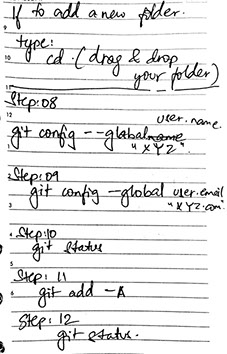 If to add a new folder.
type:
cd (drag & drop
your folder)
Step:08
user.name
git config --global name
"XYZ"
Step:09
git config -global user.email
"XYZ.com"
Step:10
git status
Step: 11
git add -A
Step: 12
git status.